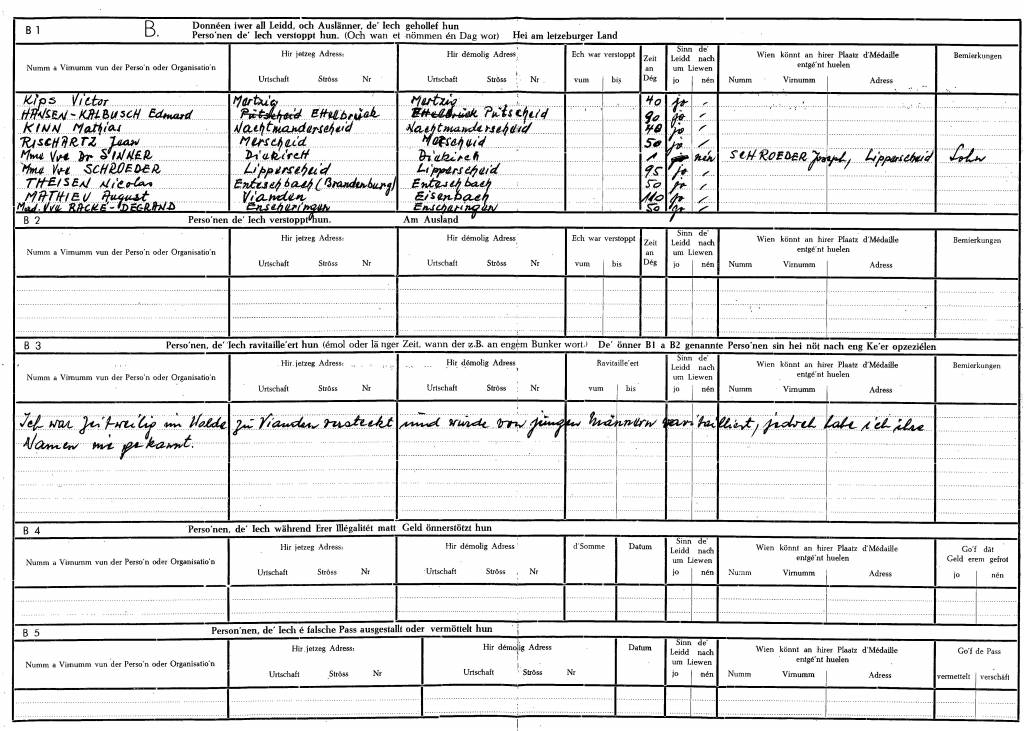 B 1 B. Donnéen iwer all Leidd, och Auslänner, de' Iech gehollef hun
Perso'nen de' Iech verstoppt hun. (Och wan et nömmen én Dag wor) Hei am letzeburger Land
Numm a Virnumm vun der Perso'n oder Organisatio'n
Hir jetzeg Adress:
Urtschaft Ströss Nr
Hir démolig Adress:
Urtschaft Ströss Nr
Ech war verstoppt
vum bis
Zeit
an
Dég
Sinn de'
Leidd nach
um Liewen
jo nén
Wien könnt an hirer Plaatz d'Médaille
entgé'nt huelen
Numm Virnumm Adress
Bemierkungen
Kips Victor Mertzig Mertzig 40 jo
HANSEN-KALBUSCH Edmard Pütscheid Ettelbrück Ettelbrück Pütscheid 90 jo
KINN Mathias Nachtmanderscheid Nachtmanderscheid 40 jo
RISCHARTZ Jean Merscheid Merscheid 50 jo
Mme Vve Dr SINNER Diekirch Diekirch 1 jo nén SCHROEDER Joseph, Lipperscheid Sohn
Mme Vve SCHROEDER Lipperscheid Lipperscheid 95 jo
THEISEN Nicolas Enteschbach (Brandenburg) Enteschbach 50 jo
MATHIEU August Vianden Eisenbach 110 jo
Mad. Vve RACKE-DEGRAND Enscheringen Enscheringen 50 jo
B 2 Perso'nen de' Iech verstoppt hun. Am Ausland
Numm a Virnumm vun der Perso'n oder Organisatio'n
Hir jetzeg Adress:
Urtschaft Ströss Nr
Hir démolig Adress
Urtschaft Ströss Nr
Ech war verstoppt
vum bis
Zeit
an
Dég
Sinn de'
Leidd nach
um Liewen
jo nén
Wien könnt an hirer Plaatz d'Médaille
entgé'nt huelen
Numm Virnumm Adress
Bemierkungen
B 3 Perso'nen, de' Iech ravitaille'ert hun (émol oder länger Zeit, wann der z.B. an engém Bunker wort.) De' önner B1 a B2 genannte Perso'nen sin hei nöt nach eng Ke'er opzeziélen
Numm a Virnumm vun der Perso'n oder Organisatio'n
Hir jetzeg Adress:
Urtschaft Ströss Nr
Hir démolig Adress
Urtschaft Ströss Nr
Ravitaille'ert
vum bis
Sinn de'
Leidd nach
um Liewen
jo nén
Wien könnt an hirer Plaatz d'Médaille
entgé'nt huelen
Numm Virnumm Adress
Bemierkungen
Ich war zeitweilig im Walde zu Vianden versteckt und wurde von jungen Männern ravitailliert, jedoch habe ich ihre
Namen nie gekannt.
B 4 Perso'nen, de' Iech während Erer Illégalitét matt Geld önnerstötzt hun
Numm a Virnumm vun der Perso'n oder Organisatio'n
Hir jetzeg Adress:
Urtschaft Ströss Nr
Hir démolig Adress
Urtschaft Ströss Nr
d'Somme
Datum
Sinn de'
Leidd nach
um Liewen
jo nén
Wien könnt an hirer Plaatz d'Médaille
entgé'nt huelen
Numm Virnumm Adress
Go'f dát
Geld erem gefrot
jo nén
B 5 Person'nen, de' Iech é falsche Pass ausgestallt oder vermöttelt hun
Numm a Virnumm vun der Perso'n oder Organisatio'n
Hir jetzeg Adress:
Urtschaft Ströss Nr
Hir démolig Adress
Urtschaft Ströss Nr
Datum
Sinn de'
Leidd nach
um Liewen
jo nén
Wien könnt an hirer Plaatz d'Médaille
entgé'nt huelen
Numm Virnumm Adress
Go'f de Pass
vermettelt verschäft